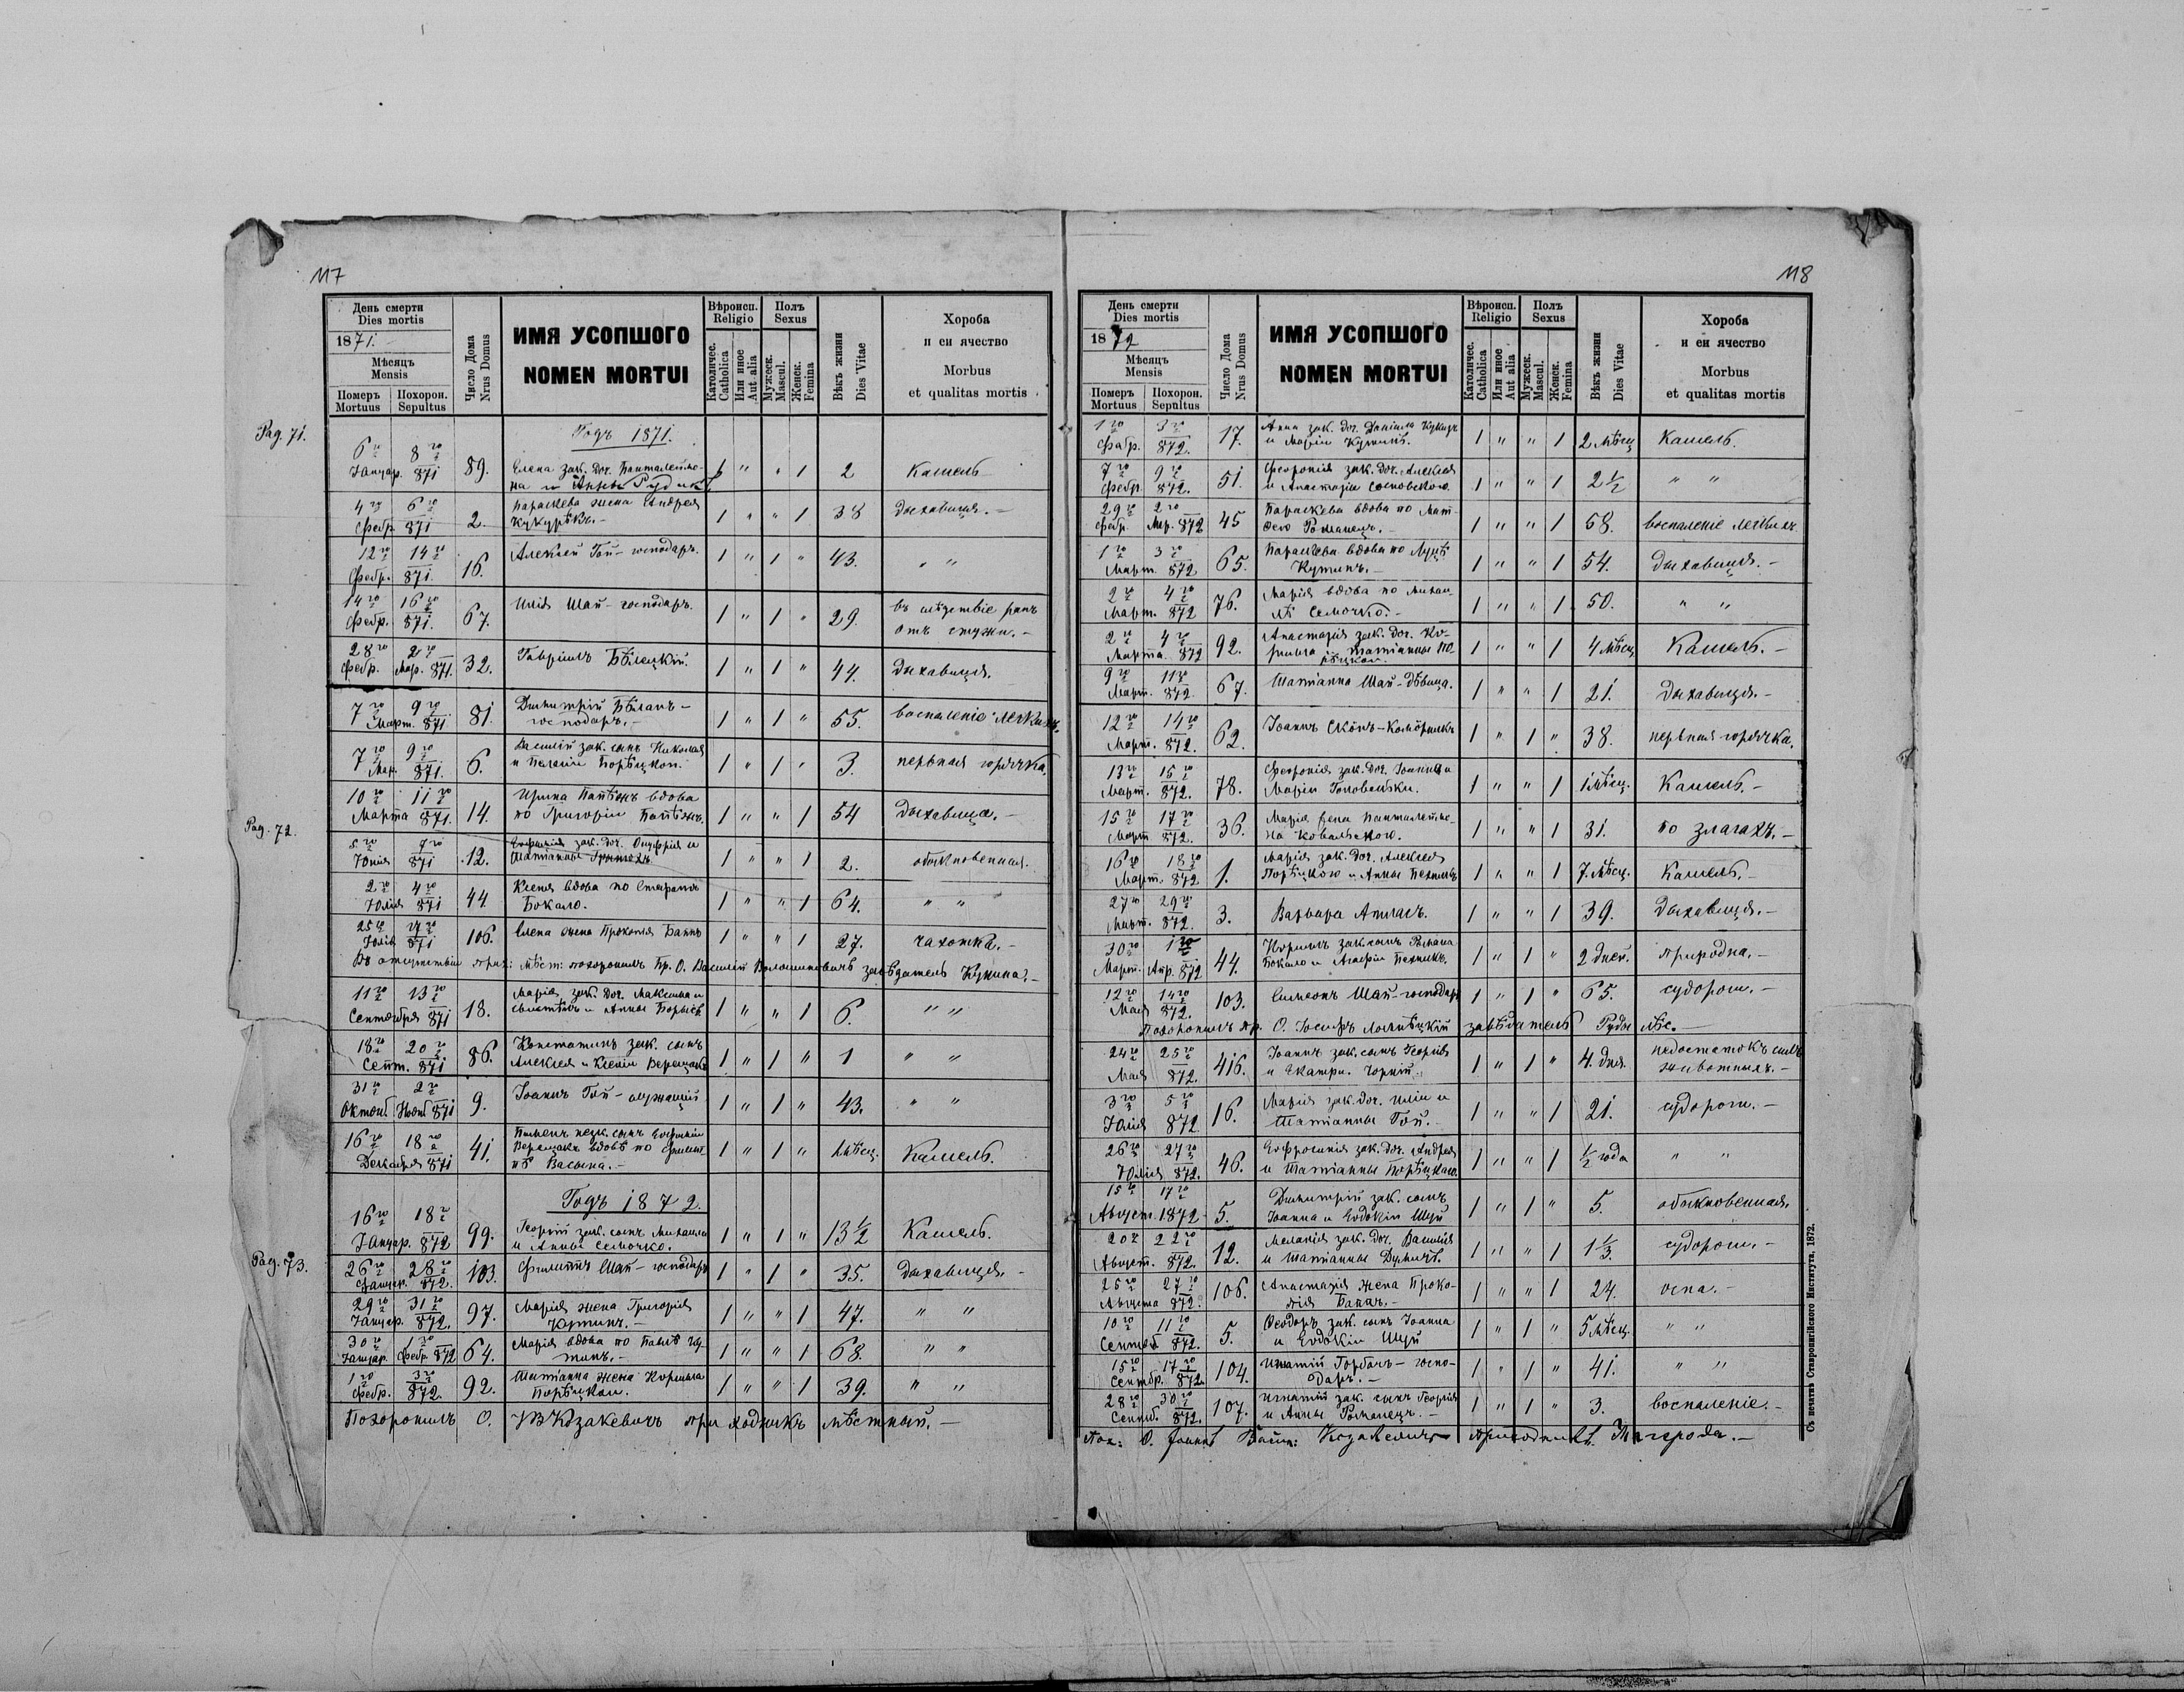 117
День смерти
Dies mortis
1871.
Мѣсяцъ
Mensis
Померъ
Mortuus
Похорон.
Sepultus
Число Дома
Nrus Domus
ИМЯ УСОПШОГО
NOMEN MORTUI
Вѣроисп.
Religio
Католичес.
Catholica
Или иное
Aut alia
Полъ
Sexus
Мужеск.
Mascul.
Женск.
Femina
Вѣкъ жизни
Dies Vitae
Хороба
и еи ячество
Morbus
et qualitas mortis
Pag. 71.
Годъ 1871.
6го 8го
Януар. 871 89. Елена зак. доч. Панталеймо- 1 " " 1 2 Кашель
на и Анны
4го 6го Параскева жена Андрея
Февр. 871 2. 1 " " 1 38 дыхавиця.-
12го 14го Алексѣй Гой - господарь.
Февр. 871. 16. 1 " 1 " 43. " "
14го 16го Илія Шай - господарь.
Февр. 871. 67. 1 " 1 " 29. въ слѣдствіе ранъ
отъ стужи.-
28го 2го Гавріилъ Бѣлецкій.
Февр. Мар. 871. 32. 1 " 1 " 44. дыхавиця.
7го 9го Димитрій Бѣланъ -
Март. 871 81. господарь.- 1 " 1 " 55. воспаленіе легкихъ.
7го 9го Василій зак. сынъ Николая
Мар. 871. 6. и Пелагіи Порѣцкой. 1 " 1 " 3. нервная горячка.
Pag. 72.
10го 11го вдова
Марта 871. 14. по Григоріи 1 " " 1 54 дыхавица.-
5го 7го зак. доч. Онуфрія и
Юнія 871 12. Татіанны 1 " " 1 2. обыкновенная.
2го 4го Ксенія вдова по Стефанѣ
Юлія 871 44 Бокало. 1 " " 1 64. " "
25го 27го Елена жена Прокопія Банахъ
Юлія 871 106. 1 " " 1 27. чахотка.-
Въ отсутствіи прих: мѣст: похоронилъ Пр. О. Василій завѣдатель Кунина.-
11го 13го Марія зак. доч. Максима
Сентября 871 18. и Анны 1 " " 1 6. " "
18го 20го Константинъ зак. сынъ
Сент. 871 86. Алексѣя и Ксеніи Верещакъ 1 " 1 " 1 " "
31го 2го Іоаннъ Гой - служащій
Октоб. Нов. 871 9. 1 " 1 " 43. " "
16го 18го незк. сынъ
Декабря 871 41. Верещакъ вдовы по
Васына.- 1 " 1 " мѣсц. Кашель.
Годъ 1872.
16го 18го
Януар. 872 99. Георгій зак. сынъ Михаила
и Анны Семочко. 1 " 1 " 13½ Кашель.
Pag. 73.
26го 28го Филиппъ Шай - господарь
Януар. 872. 103. 1 " 1 " 35. дыхавиця.-
29го 31го Марія жена Григорія
Януар. 872. 97. Кутинъ.- 1 " " 1 47. " "
30го 1го Марія вдова по Павлѣ Ку-
Януар. Февр. 872 64. тинъ.- 1 " " 1 68. " "
1го 3го Татіанна жена Корнила
Февр. 872. 92. Порѣцкои. 1 " " 1 39. " "
Похоронилъ О. Казакевичъ приходникъ мѣстный.-
118
День смерти
Dies mortis
1872
Мѣсяцъ
Mensis
Померъ
Mortuus
Похорон.
Sepultus
Число Дома
Nrus Domus
ИМЯ УСОПШОГО
NOMEN MORTUI
Вѣроисп.
Religio
Католичес.
Catholica
Или иное
Aut alia
Полъ
Sexus
Мужеск.
Mascul.
Женск.
Femina
Вѣкъ жизни
Dies Vitae
Хороба
и еи ячество
Morbus
et qualitas mortis
1го 3го Анна зак. доч. Даніила
Февр. 872. 17. и Маріи Кутинъ. 1 " " 1 2 мѣсц Кашель.
7го 9го Феоронія зак. доч. Алексѣя
Февр. 872. 51. и Анастазіи Сосновского. 1 " " 1 2½ " "
29го 2го Параскева вдова по Мат-
Февр. Мар. 872 45 фею Романецъ.- 1 " " 1 58. воспаленіе легкихъ
1го 3го Параскева вдова по Луцѣ
Март. 872 65. Кутинъ.- 1 " " 1 54. дыхавиця.-
2го 4го Марія вдова по Михаи-
Март. 872 76. лѣ Семочко.- 1 " " 1 50. " "
2го 4го Анастазія зак. доч. Ко-
Марта 872 92. рнила и Татіанны По-
рѣцкои. 1 " " 1 4 мѣсц Кашель.-
9го 11го Татіанна Шай - дѣвица.
Март. 872. 67. 1 " " 1 21. дыхавиця.-
12го 14го Іоаннъ
Март. 872. 62. 1 " 1 " 38. нервная горячка.
13го 15го Феоронія зак. доч. Іоанна и
Март. 872. 78. Маріи 1 " " 1 1 мѣсц. Кашель.-
15го 17го Марія жена Панталеймо-
Март. 872. 36. на Ковальского. 1 " " 1 31. по злогахъ.-
16го 18го Марія зак. доч. Алексѣя
Март. 872 1. Порѣцкого и Анны 1 " " 1 7. мѣсц. Кашель.-
27го 29го
Март. 872. 3. Варвара Атласъ. 1 " " 1 39. дыхавиця.-
30го 1го Корнилъ зак сынъ Романа
Март. Апр. 872 44. Бокало и Агафіи 1 " 1 " 2 дней. природна.-
12го 14го
Мая 872. 103. Симеонъ Шай - господарь 1 " 1 " 65. судороги.-
Похоронилъ пр. О. Іосифъ завѣдатель Руды лѣс.-
24го 25го Іоаннъ зак. сынъ Георгія
Мая 872. 416. и Екатри. Чорній. 1 " 1 " 4. дня. недостатокъ силъ
животныхъ.-
3го 5го Марія зак. доч. Иліи и
Юлія 872. 16. Татіанны Гой.- 1 " " 1 21. судороги.-
26го 27го Евфросинія зак. доч. Андрея
Юлія 872. 46. и Татіанны Порѣцкого. 1 " " 1 ½ года " "
15го 17го Димитрій зак. сынъ
Август. 1872 5. Іоанна и Евдокіи Шуй 1 " 1 " 5. обыкновенная.
20го 22го Меланія зак. доч. Василія
Август. 872. 12. и Татіанны 1 " " 1 1⅓. судороги.-
25го 27го Анастазія жена Проко-
Августа 872. 106. пія Банахъ.- 1 " " 1 24. оспа.-
10го 11го Феодоръ зак. сынъ Іоанна
Сентяб. 872. 5. и Евдокіи Шуй 1 " 1 " 5 мѣсц. " "
15го 17го Игнатій Горбачъ - госпо-
Сентбр. 872. 104. дарь.- 1 " 1 " 41. " "
28го 30го Игнатій зак. сынъ Георгія
Сентб. 872. 107. и Анны Романецъ.- 1 " 1 " 3. воспаленіе.-
Пох: О. Іоаннъ Казакевичъ приходникъ
Съ печатнѣ Ставропигійского Института, 1872.